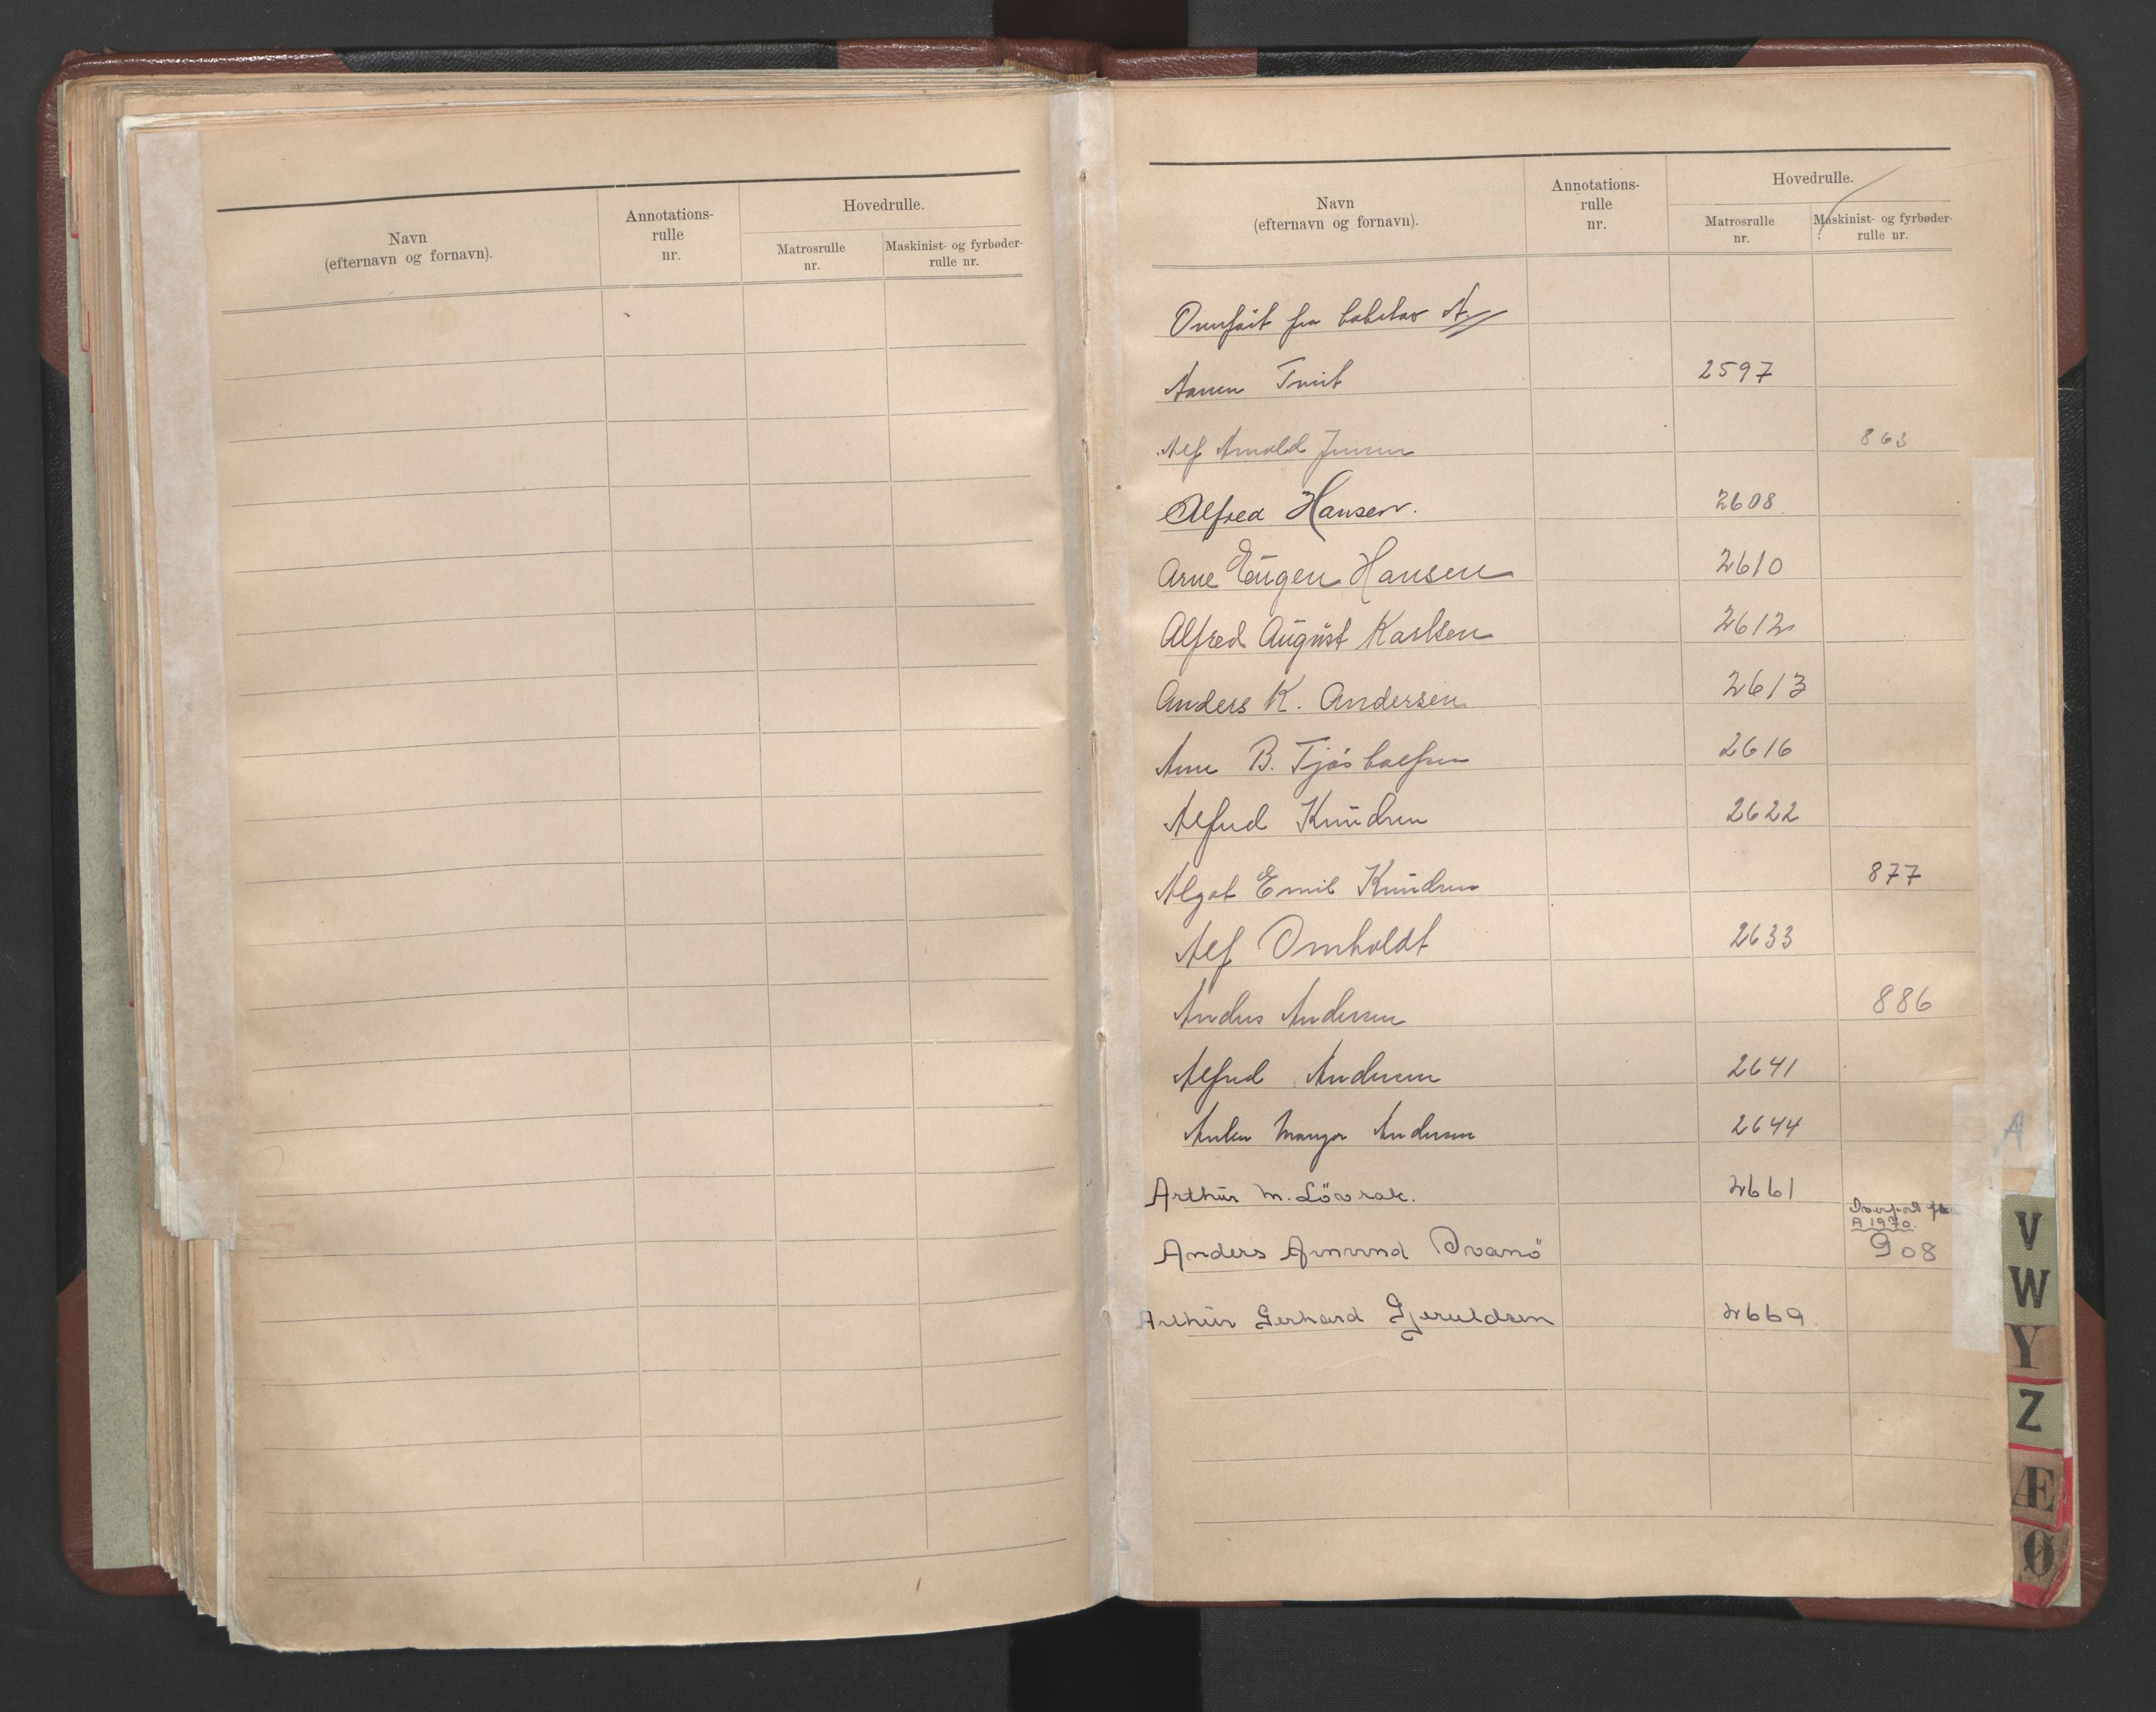 Navn
(efternavn og fornavn).
Annotations-
rulle
nr.
Hovedrulle.
Matrosrulle
nr.
Maskinist- og fyrbøder-
rulle nr.
Navn
(efternavn og fornavn).
Annotations-
rulle
nr.
Hovedrulle.
Matrosrulle
nr.
Maskinist- og fyrbøder-
rulle nr.
fra A.
2597
Alf Arnold Jensen 863
Alfred Hansen. 2608
Arne Eugen Hansen 2610
Alfred August Karlsen 2612
Anders K. Andersen 2613
Arne B. 2616
Alfred Knudsen 2622
Algot Emil Knudsen 877
Alf Omholdt 2633
Anders Andersen 886
Alfred Andersen 2641
Andersen 2644
Arthur M. Lövrak. 2661
Overført fra
A 1970.
Anders Amund Ovanö 908
Arthur Gerhard Gjeruldsen 2669.
A
V
W
Y
Z
Æ
Ø